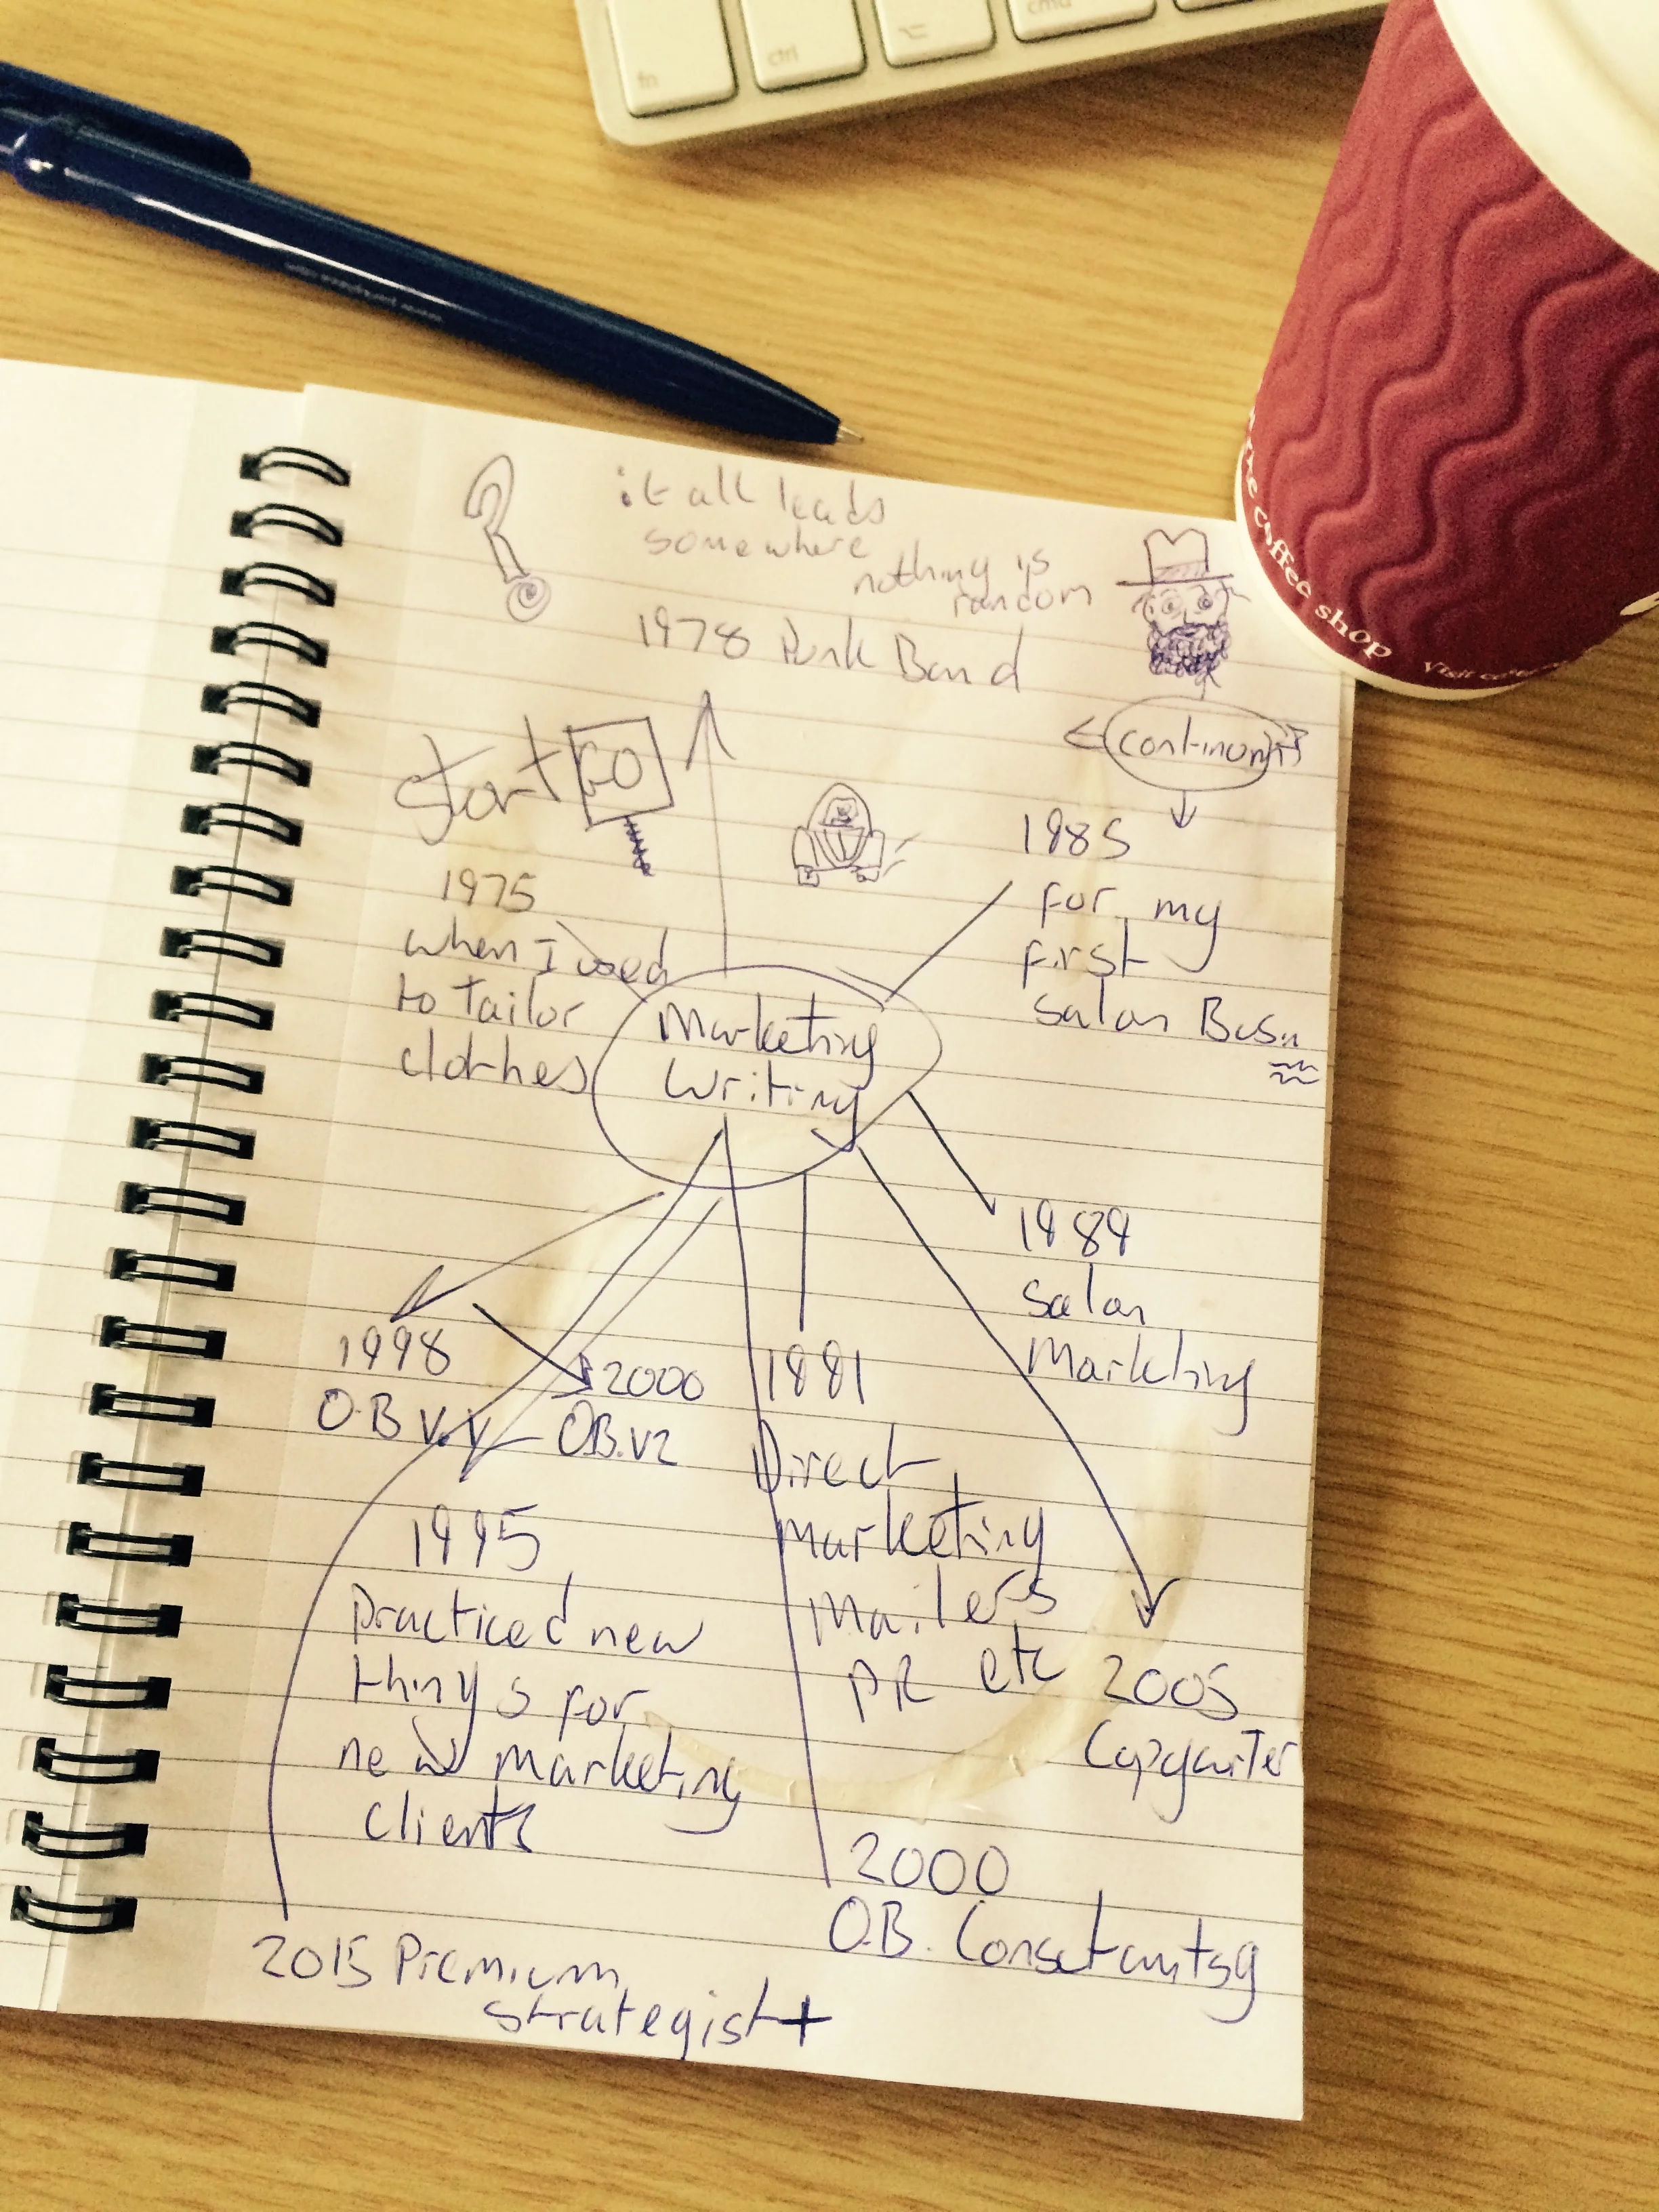 fn
ctrl
cmd
coffee shop
it all leads
somewhere
nothing is
random
1978 Punk Band
continuity
Start GO
1975
when I used
to Tailor
clothes
1985
for my
first
Salon Busn
Marketing
Writing
1989
Salon
Marketing
1998
O.B V.V
2000
OB.V2
1991
Direct
Marketing
Mailers
PR etc
1995
Practiced new
things for
new marketing
clients
2005
Copywriter
2000
O.B.
2015 Premium
strategist+